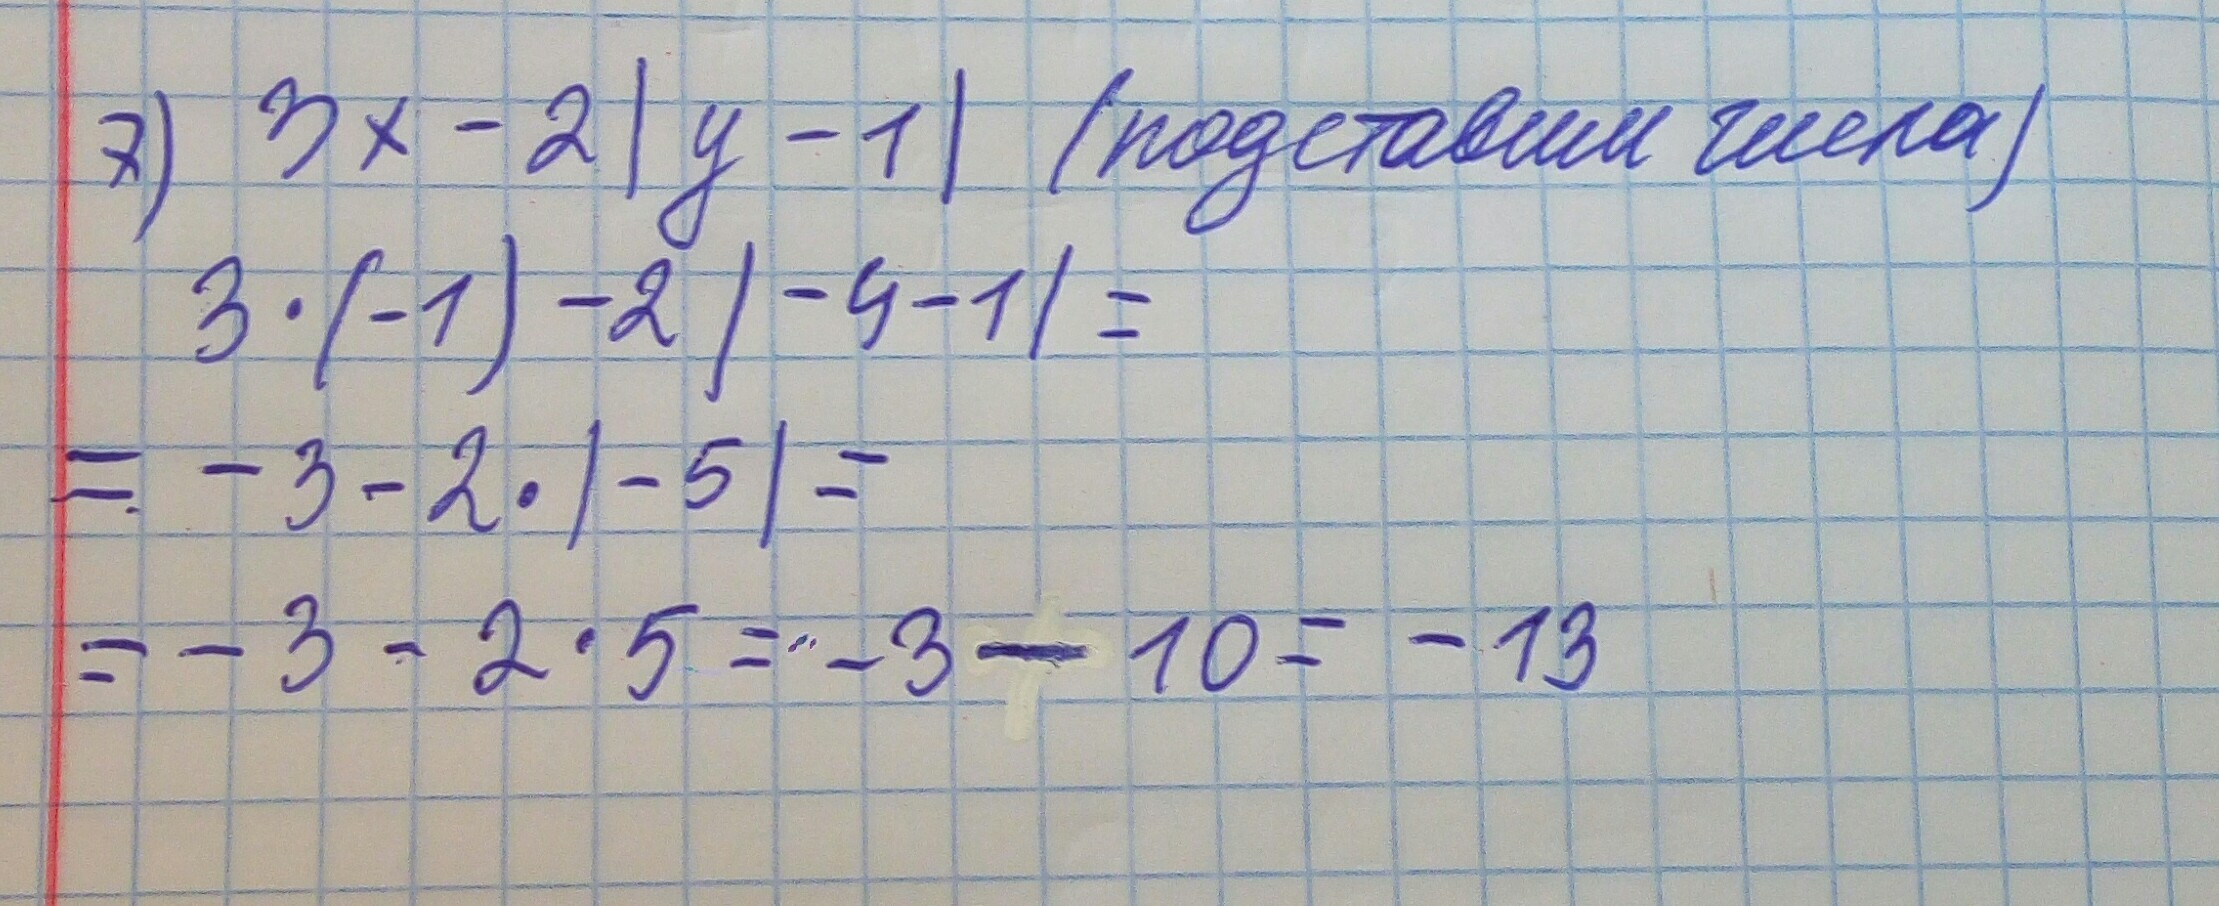 7) 3x - 2|y - 1| (подставим числа)
3·(-1) - 2|-4-1| =
= -3 - 2·|-5| =
= -3 - 2·5 = -3 - 10 = -13